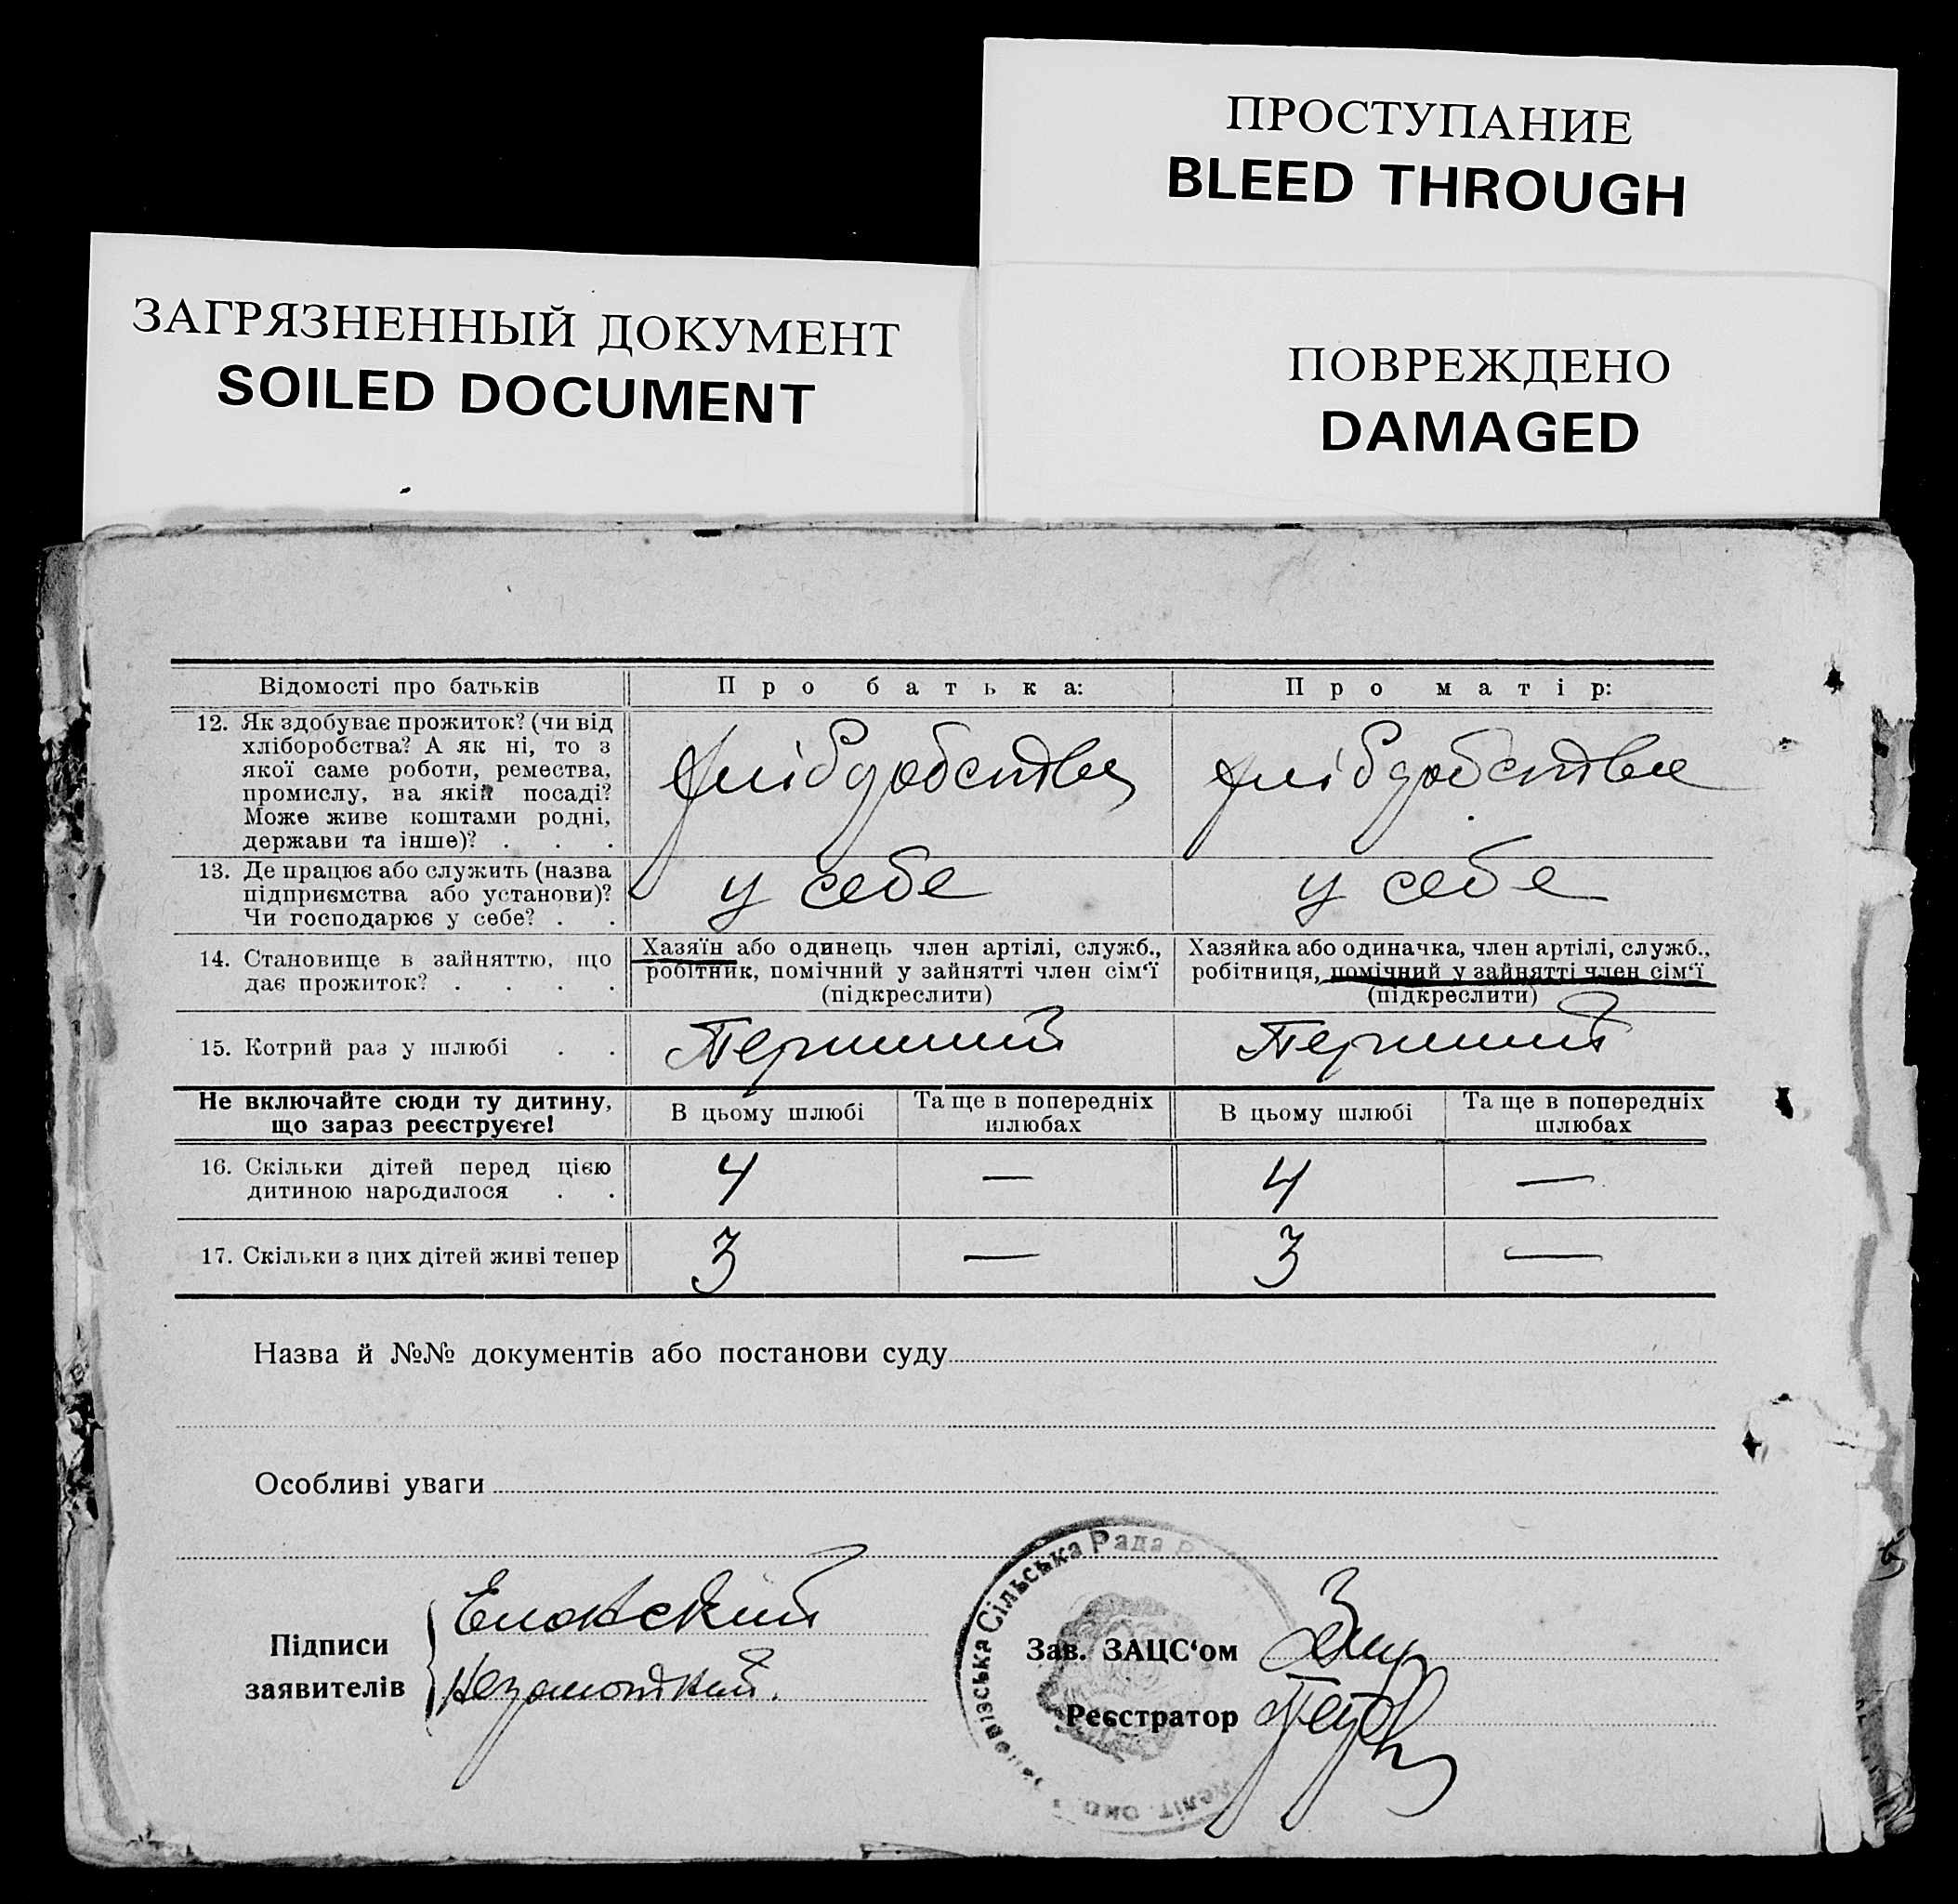 ПРОСТУПАНИЕ
BLEED THROUGH
ЗАГРЯЗНЕННЫЙ ДОКУМЕНТ
SOILED DOCUMENT
ПОВРЕЖДЕНО
DAMAGED
Відомості про батьків
Про батька:
Про матір:
12. Як здобуває прожиток? (чи від
хліборобства? А як ні, то з
якої саме роботи, ремества,
промислу, на якій посаді?
Може живе коштами родні,
держави та інше)? . . .
13. Де працює або служить (назва
підприємства або установи)?
Чи господарює у себе? . .
у себе
у себе
14. Становище в зайняттю, що
дає прожиток? . . . .
Хазяїн або одинець член артілі, служб.,
робітник, помічний у зайнятті член сім‘ї
(підкреслити)
Хазяйка або одиначка, член артілі, служб.,
робітниця, помічний у зайнятті член сім‘ї
(підкреслити)
15. Котрий раз у шлюбі . .
Перший
Перший
Не включайте сюди ту дитину,
що зараз реєструєте!
В цьому шлюбі
Та ще в попередніх
шлюбах
В цьому шлюбі
Та ще в попередніх
шлюбах
16. Скільки дітей перед цією
дитиною народилося . .
4
—
4
—
17. Скільки з цих дітей живі тепер
3
—
3
—
Назва й №№ документів або постанови суду
Особливі уваги
Підписи
заявителів
Зав. ЗАЦС‘ом
Реєстратор
Сільська Рада